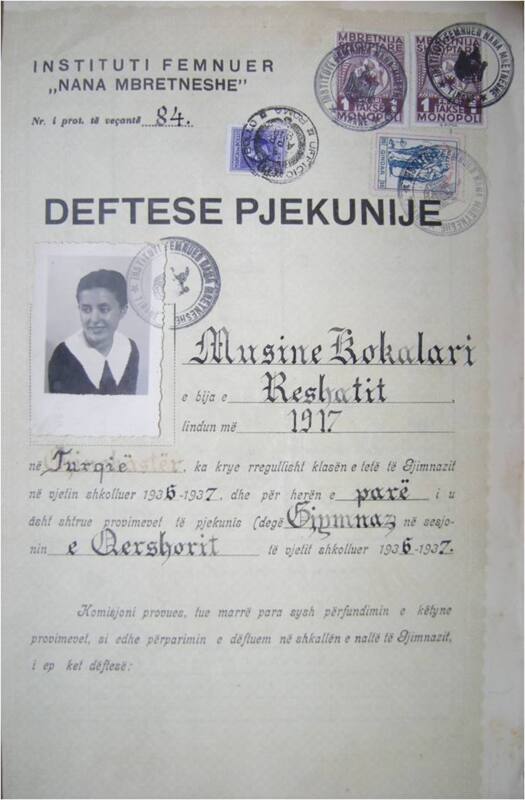 INSTITUTI FEMNUER
„NANA MBRETNESHE"
Nr. i prot. të veçantë 84.
MBRETNIJA
SHQIPTARE
1 1
TAKSE
MONOPOLI
MBRETNIJA
SHQIPTARE
1 1
TAKSE
MONOPOLI
INSTITUTI FEMNUER NANA MBRETNESHE
DEFTESE PJEKUNIJE
INSTITUTI FEMNUER NANA MBRETNESHE
Musine Kokalari
e bija e Reshatit,
lindun më 1917
në Turqië, ka krye rregullisht klasën e tetë të Gjimnazit
në vjetin shkolluer 1936-1937. dhe për herën e parë i u
âsht shtrue provimevet të pjekunis (degë Gjymnaz në sesjo-
nin e Qershorit të vjetit shkolluer 1936-1937.
Komisjoni provues, tue marrë para sysh përfundimin e këtyne
provimevet, si edhe përparimin e dëftuem në shkallën e naltë të Gjimnazit,
i ep ket dëftesë: